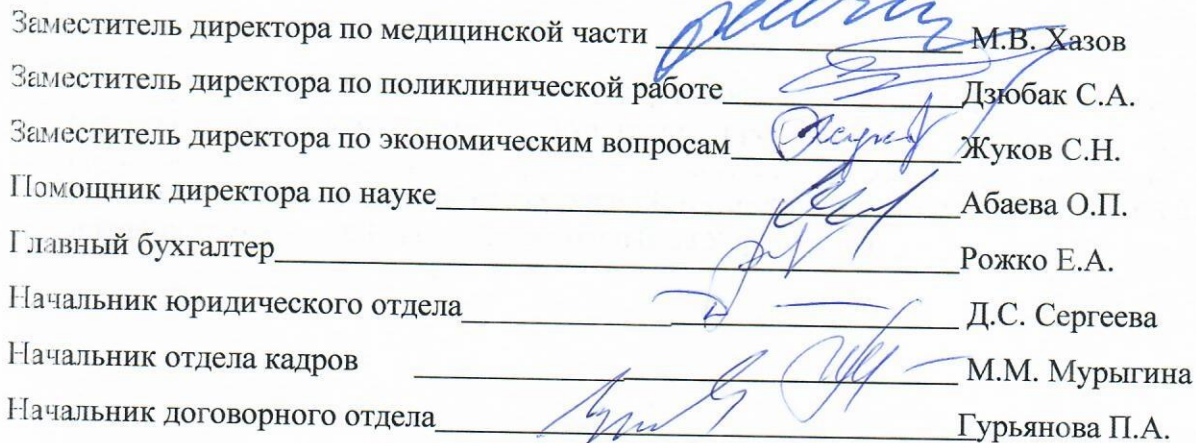 Заместитель директора по медицинской части М.В. Хазов
Заместитель директора по поликлинической работе Дзюбак С.А.
Заместитель директора по экономическим вопросам Жуков С.Н.
Помощник директора по науке Абаева О.П.
Главный бухгалтер Рожко Е.А.
Начальник юридического отдела Д.С. Сергеева
Начальник отдела кадров М.М. Мурыгина
Начальник договорного отдела Гурьянова П.А.